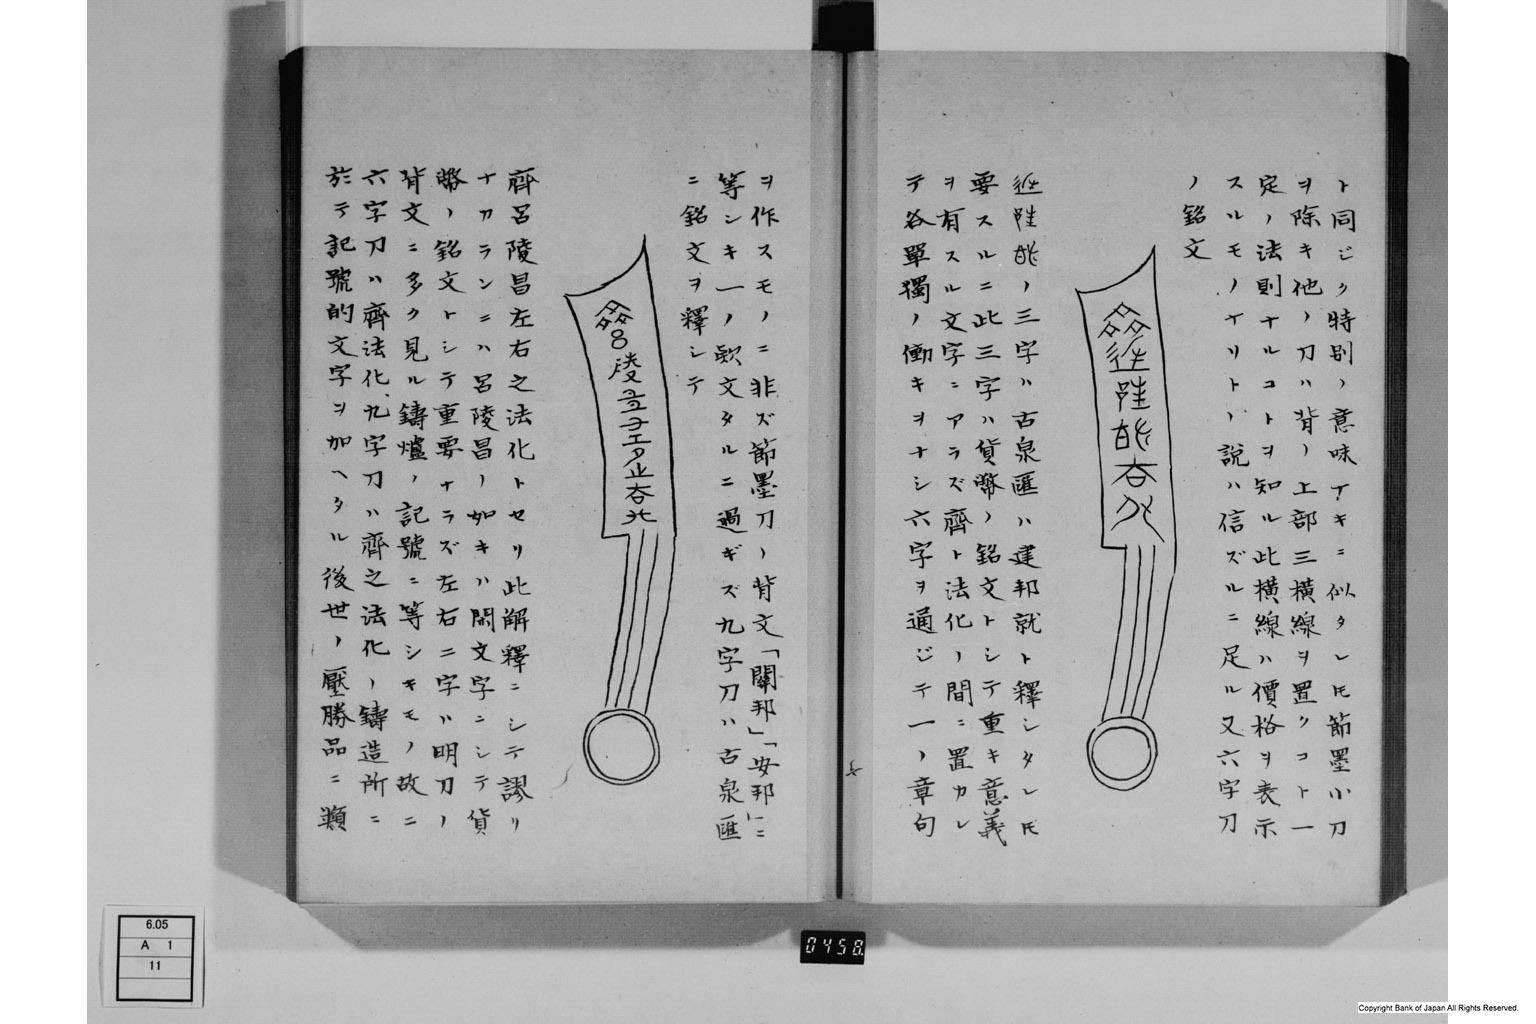 ト同ジク特別ノ意味アキニ似タレ𪜈節墨小刀
ヲ除キ他ノ刀ハ背ノ上部三横線ヲ置クコト一
定ノ法則ナルコトヲ知ル此横線ハ價格ヲ表示
スルモノナリトノ説ハ信ズルニ足ル又六字刀
ノ銘文
ノ三字ハ古泉匯ハ建邦就ト釋シタレ𪜈
要スルニ此三字ハ貨幣ノ銘文トシテ重キ意義
ヲ有スル文字ニアラズ齊ト法化ノ間ニ置カレ
テ各單獨ノ働キヲナシ六字ヲ通ジテ一ノ章句
ヲ作スモノニ非ズ節墨刀ノ背文「闢邦」「安邦」ニ
等シキ一ノ欵文タルニ過ギズ九字刀ハ古泉匯
ニ銘文ヲ釋シテ
齊呂陵昌左右之法化トセリ此解釋ニシテ謬リ
ナカランニハ呂陵昌ノ如キハ閑文字ニシテ貨
幣ノ銘文トシテ重要ナラズ左右ニ字ハ明刀ノ
背文ニ多ク見ル鑄爐ノ記號ニ等シキモノ故ニ
六字刀ハ齊法化九字刀ハ齊之法化ノ鑄造所ニ
於テ記號的文字ヲ加ヘタル後世ノ壓勝品ニ類
6.05
A 1
11
0458
Copyright Bank of Japan All Rights Reserved.